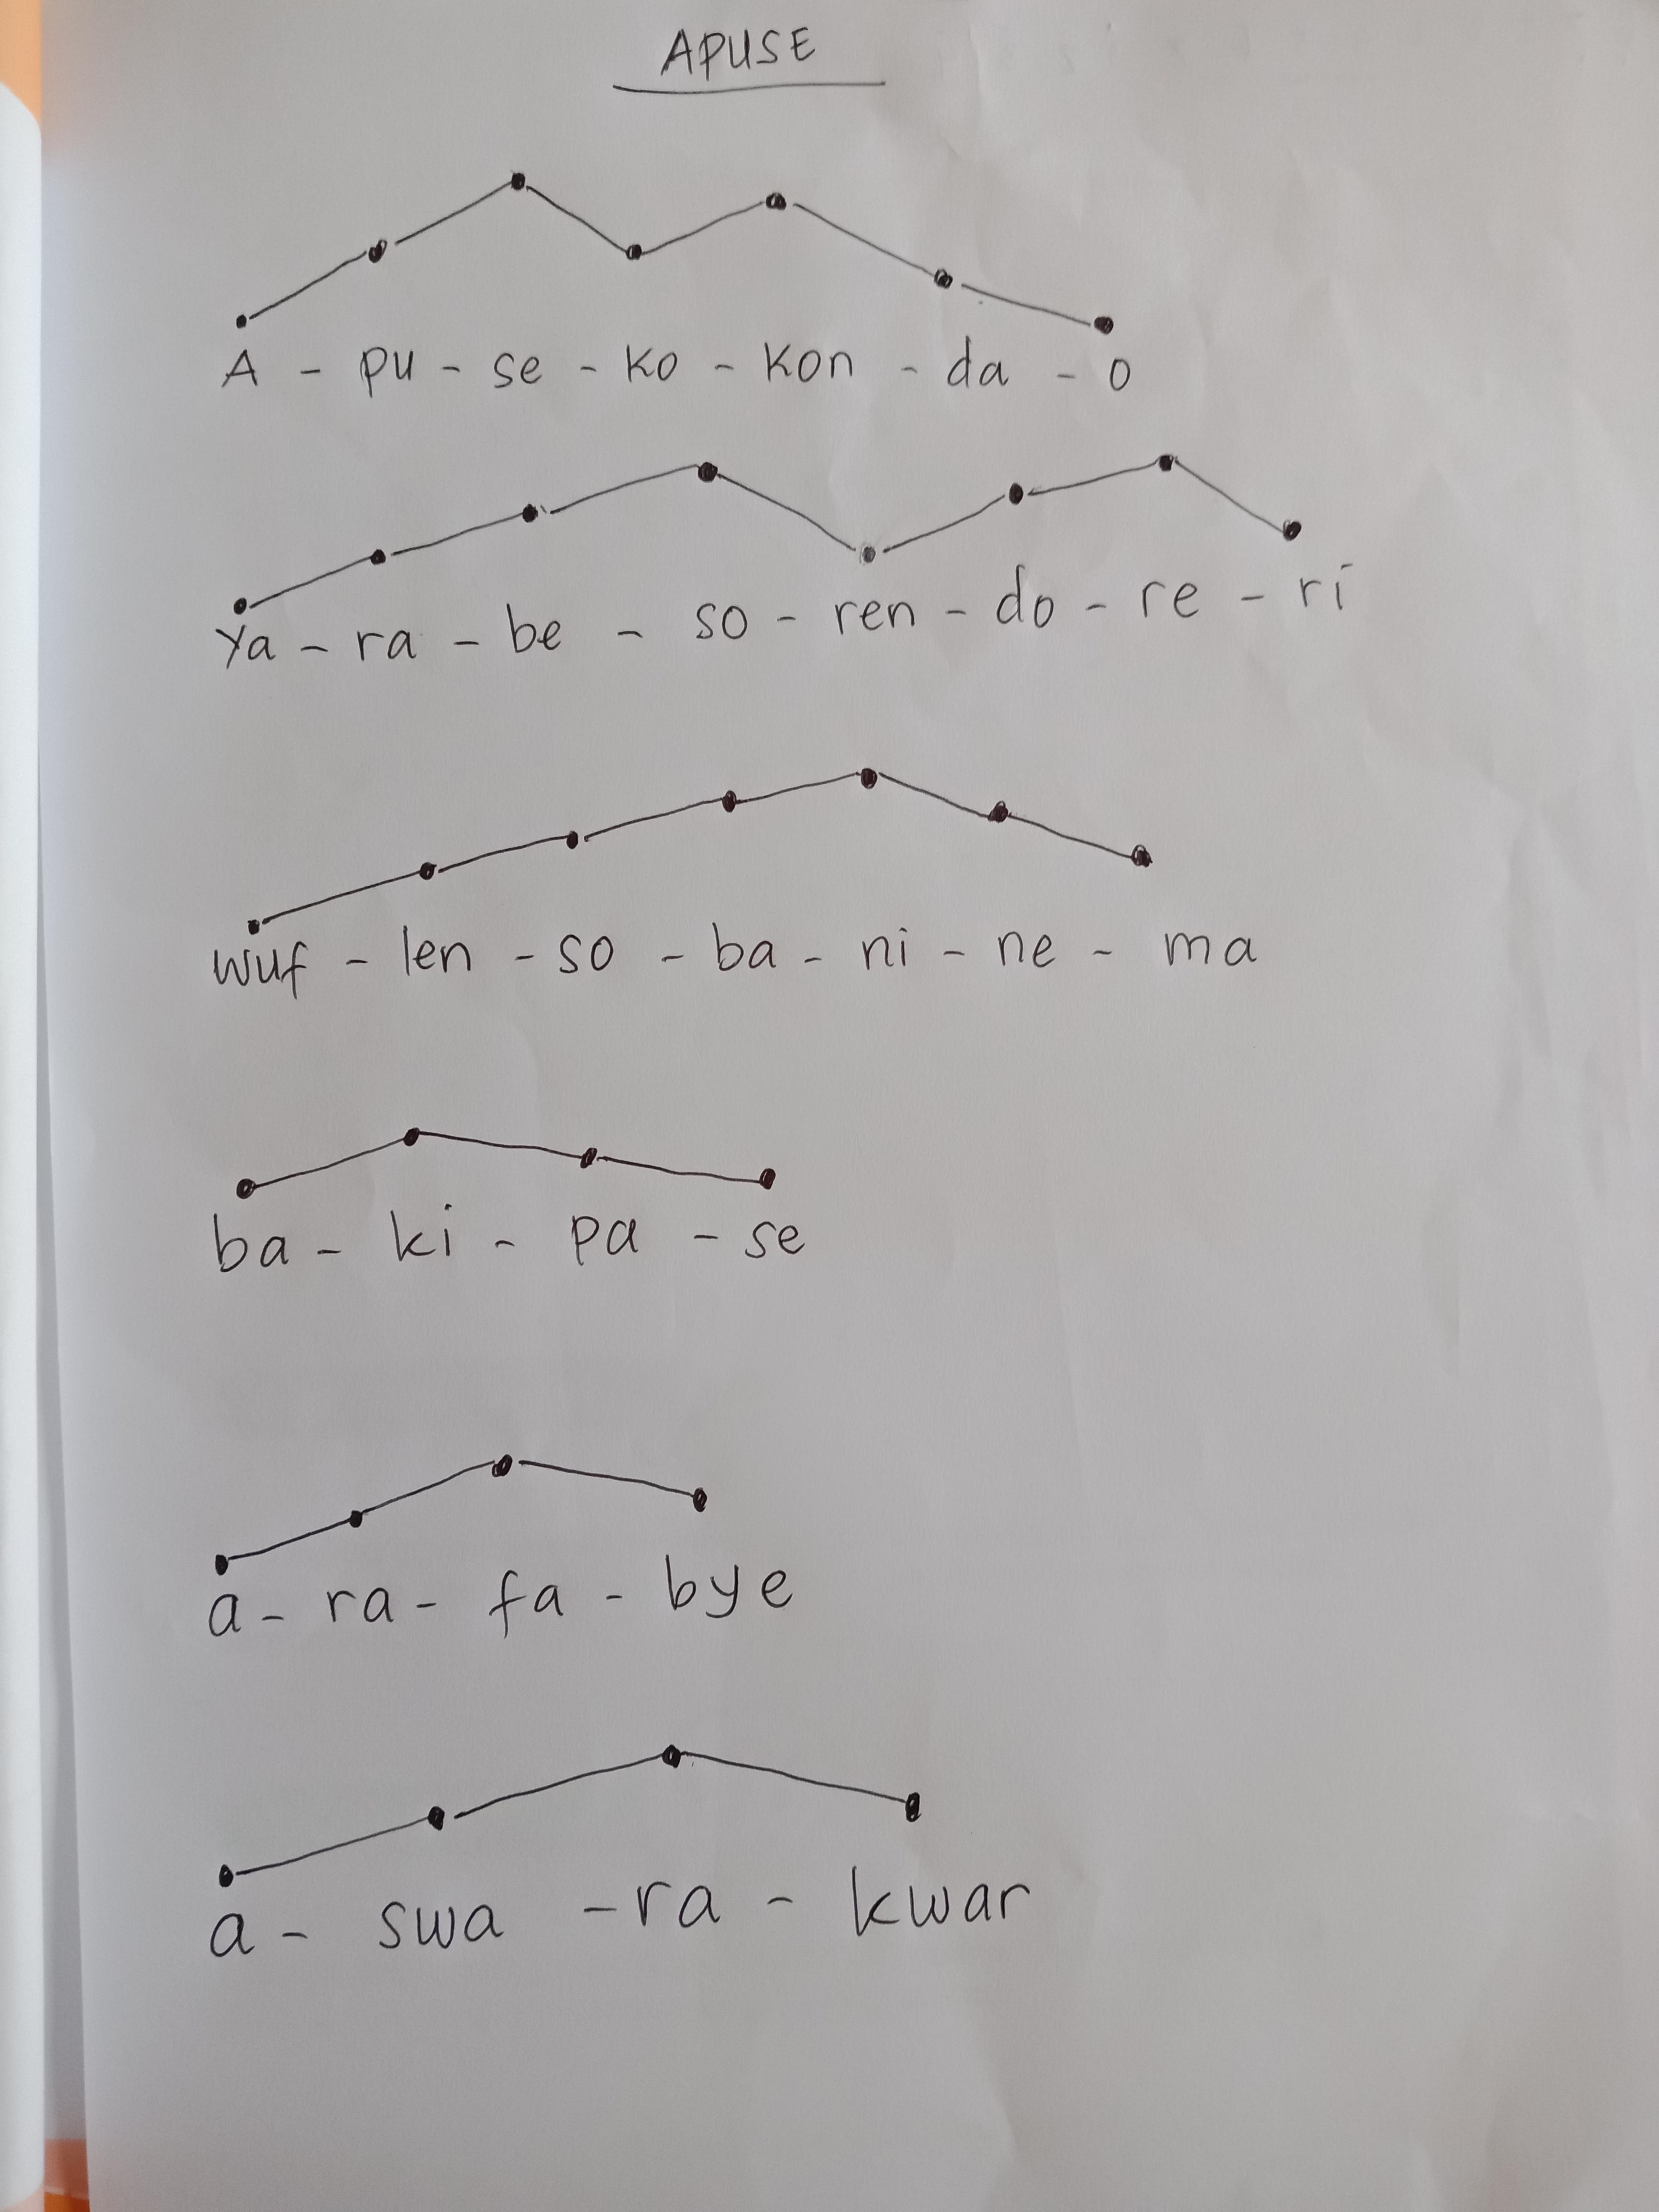 APUSE
A - pu - se - ko - kon - da - o
Ya - ra - be - so - ren - do - re - ri
wuf - len - so - ba - ni - ne - ma
ba - ki - pa - se
a - ra - fa - bye
a - swa - ra - kwar